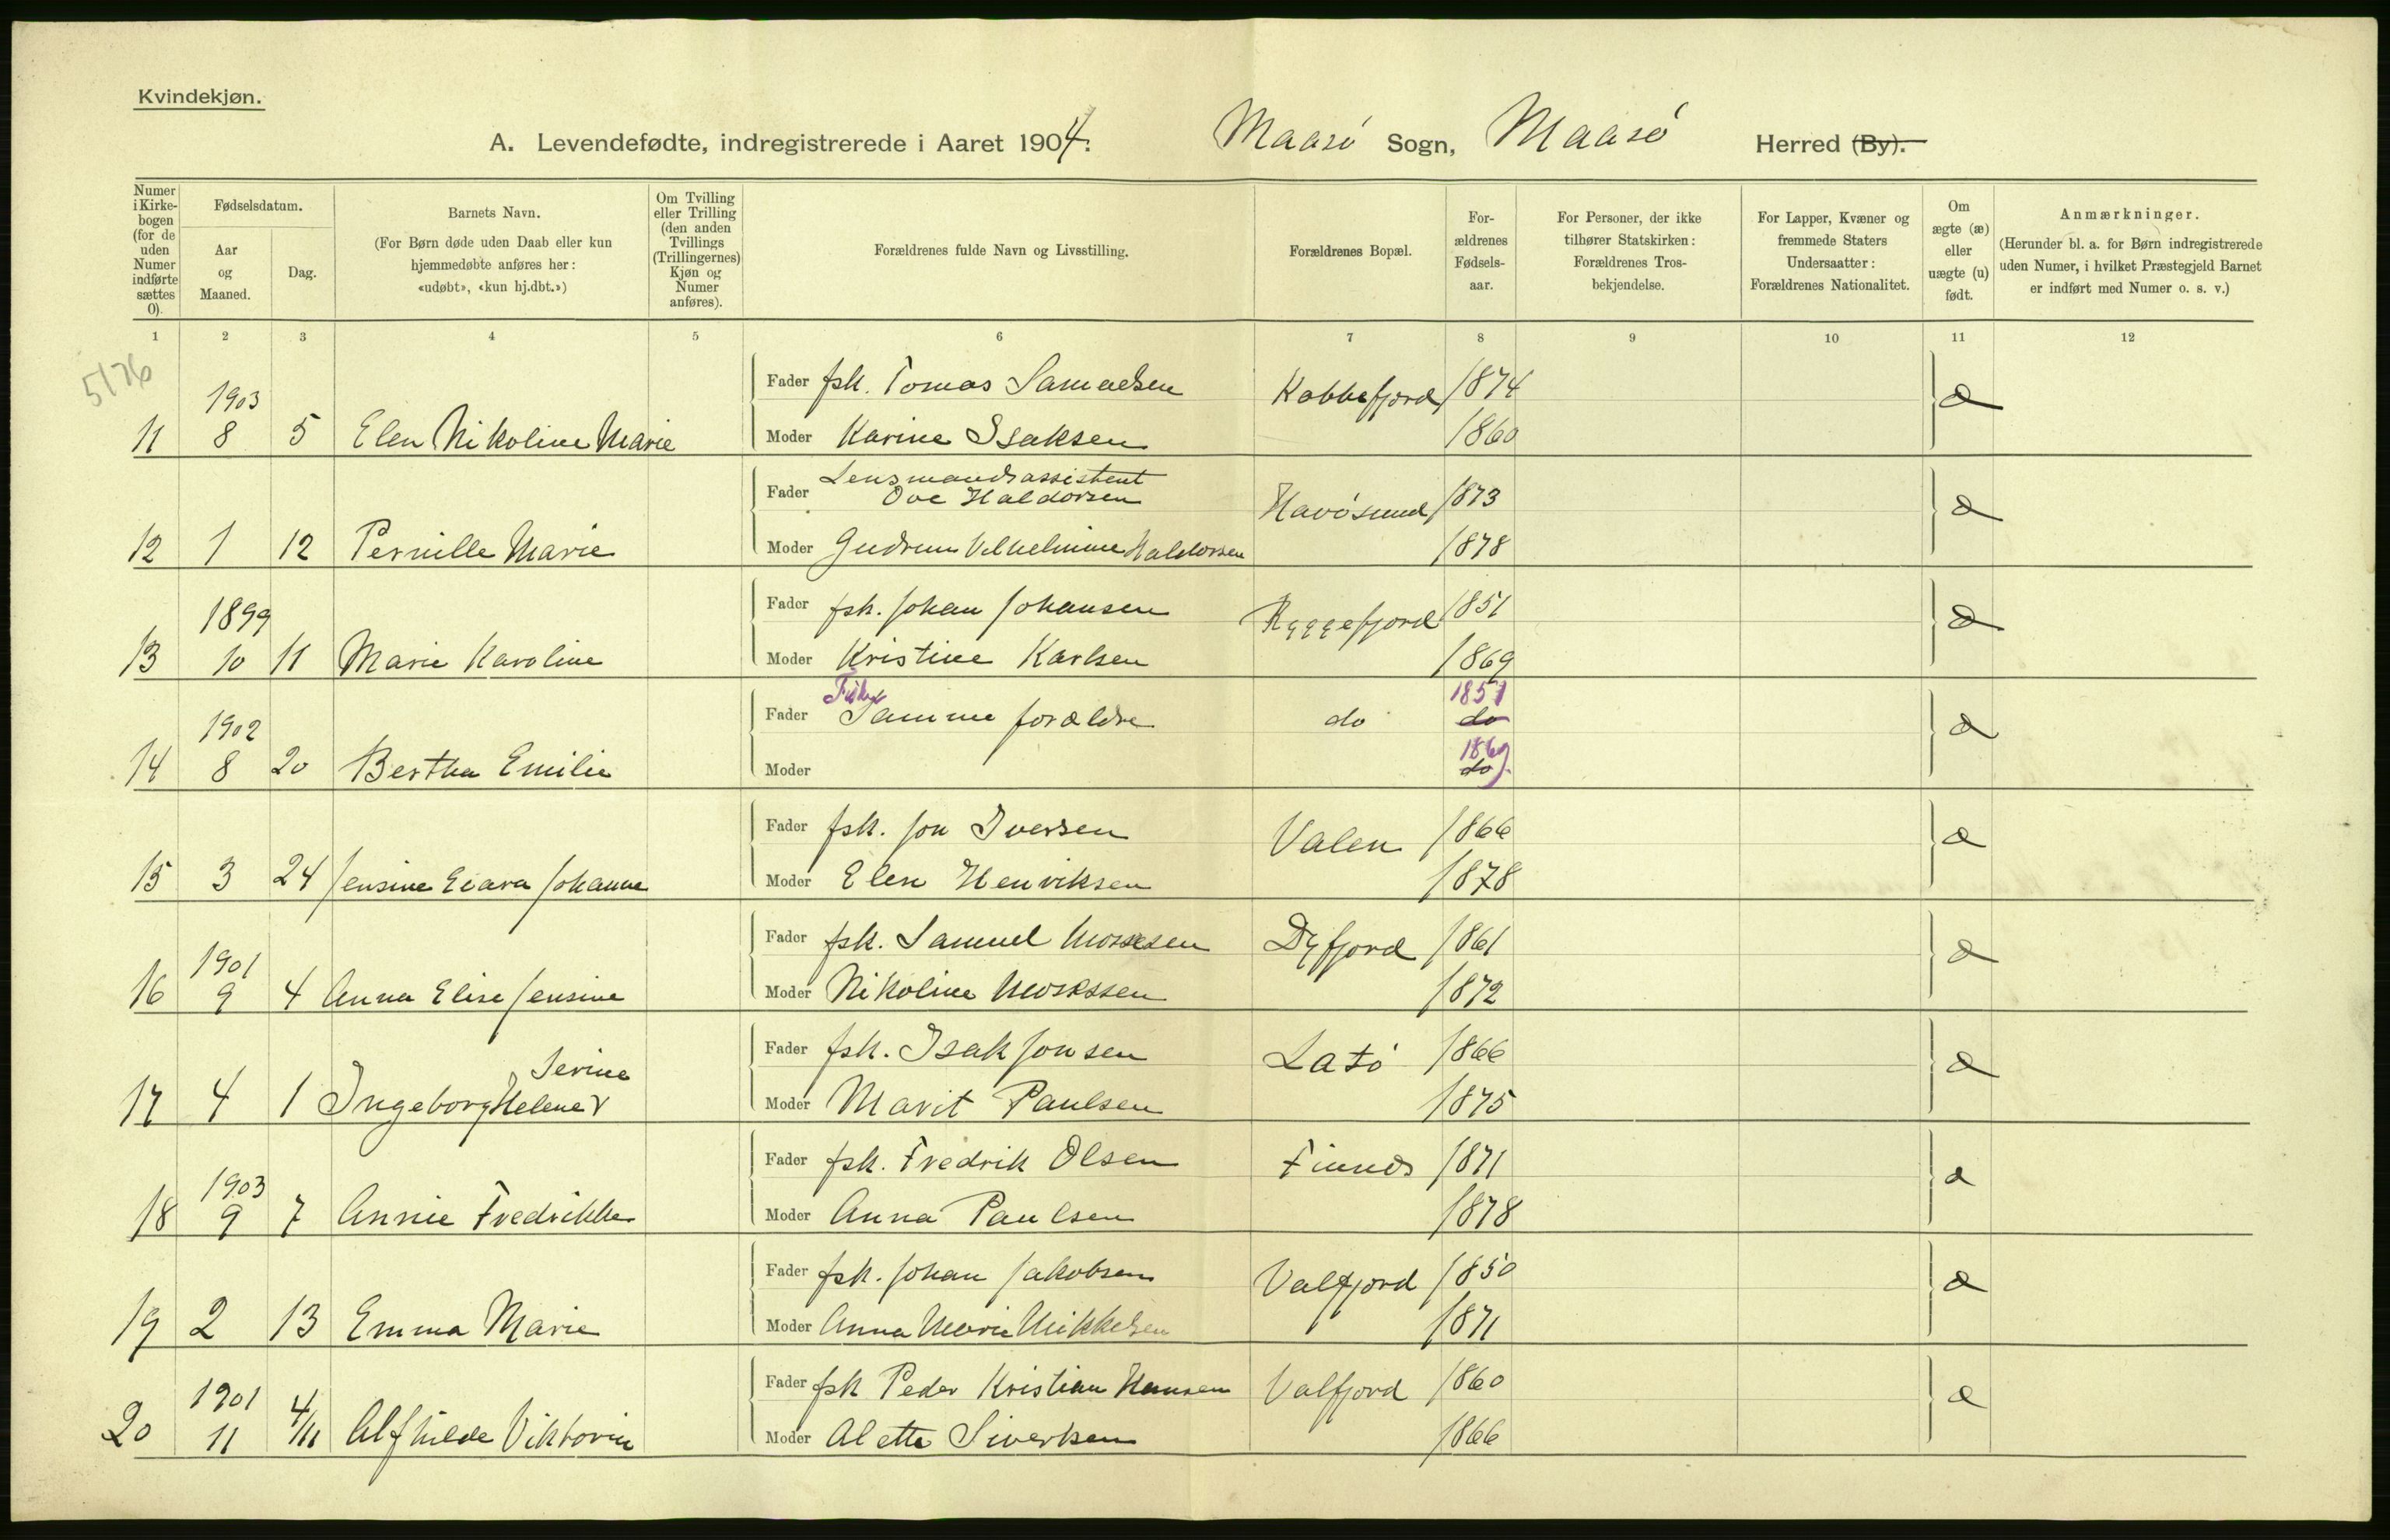 Kvindekjøn.
A. Levendefødte, indregistrerede i Aaret 1904. Maasö Sogn, Maasö Herred (By).
Numer i Kirkebogen (for de uden Numer indførte sættes 0).
Fødselsdatum.
Aar og Maaned.
Dag.
Barnets Navn.
(For Børn døde uden Daab eller kun hjemmedøbte anføres her: «udøbt», «kun hj.dbt.»)
Om Tvilling eller Trilling (den anden Tvillings (Trillingernes) Kjøn og Numer anføres).
Forældrenes fulde Navn og Livsstilling.
Forældrenes Bopæl.
Forældrenes Fødselsaar.
For Personer, der ikke tilhører Statskirken: Forældrenes Trosbekjendelse.
For Lapper, Kvæner og fremmede Staters Undersaatter: Forældrenes Nationalitet.
Om ægte (æ) eller uægte (u) født.
Anmærkninger.
(Herunder bl. a. for Børn indregistrerede uden Numer, i hvilket Præstegjeld Barnet er indført med Numer o. s. v.)
1 2 3 4 5 6 7 8 9 10 11 12
5176
1903 Fader fsk. Tomas Samuelsen Kobbefjord 1874 æ
11 8 5 Elen Nikoline Marie Moder Karine Isaksen 1860
Lensmandsassistent
Fader Ove Haldorsen Havösund 1873 æ
12 1 12 Pernille Marie Moder Gudrun Vilhelmine Haldorsen 1878
1899 Fader fsk. Johan Johansen Ryggefjord 1851 æ
13 10 11 Marie Karoline Moder Kristine Karlsen 1869
Fisker 1851
1902 Fader Samme forældre do do æ
1869
14 8 20 Bertha Emilie Moder do
Fader fsk. Jon Iversen Valen 1866 æ
15 3 24 Jensine Johanne Moder Elen Henriksen 1878
1901 Fader fsk. Samuel Mosesen Dyfjord 1861 æ
16 9 4 Anna Elise Jensine Moder Nikoline Mosessen 1872
Serine Fader fsk. Isak Jonsen Latö 1866 æ
17 4 1 Ingeborg Helene Moder Marit Paulsen 1875
1903 Fader fsk. Fredrik Olsen Finnes 1871 æ
18 9 7 Annie Fredrikke Moder Anna Paulsen 1878
Fader fsk. Johan Jakobsen Valfjord 1850 æ
19 2 13 Emma Marie Moder Anna Marie Mikkelsen 1871
1901 Fader fsk Peder Kristian Hansen Valfjord 1860 æ
20 11 4/11 Alfhilde Viktorie Moder Alette Sivertsen 1866